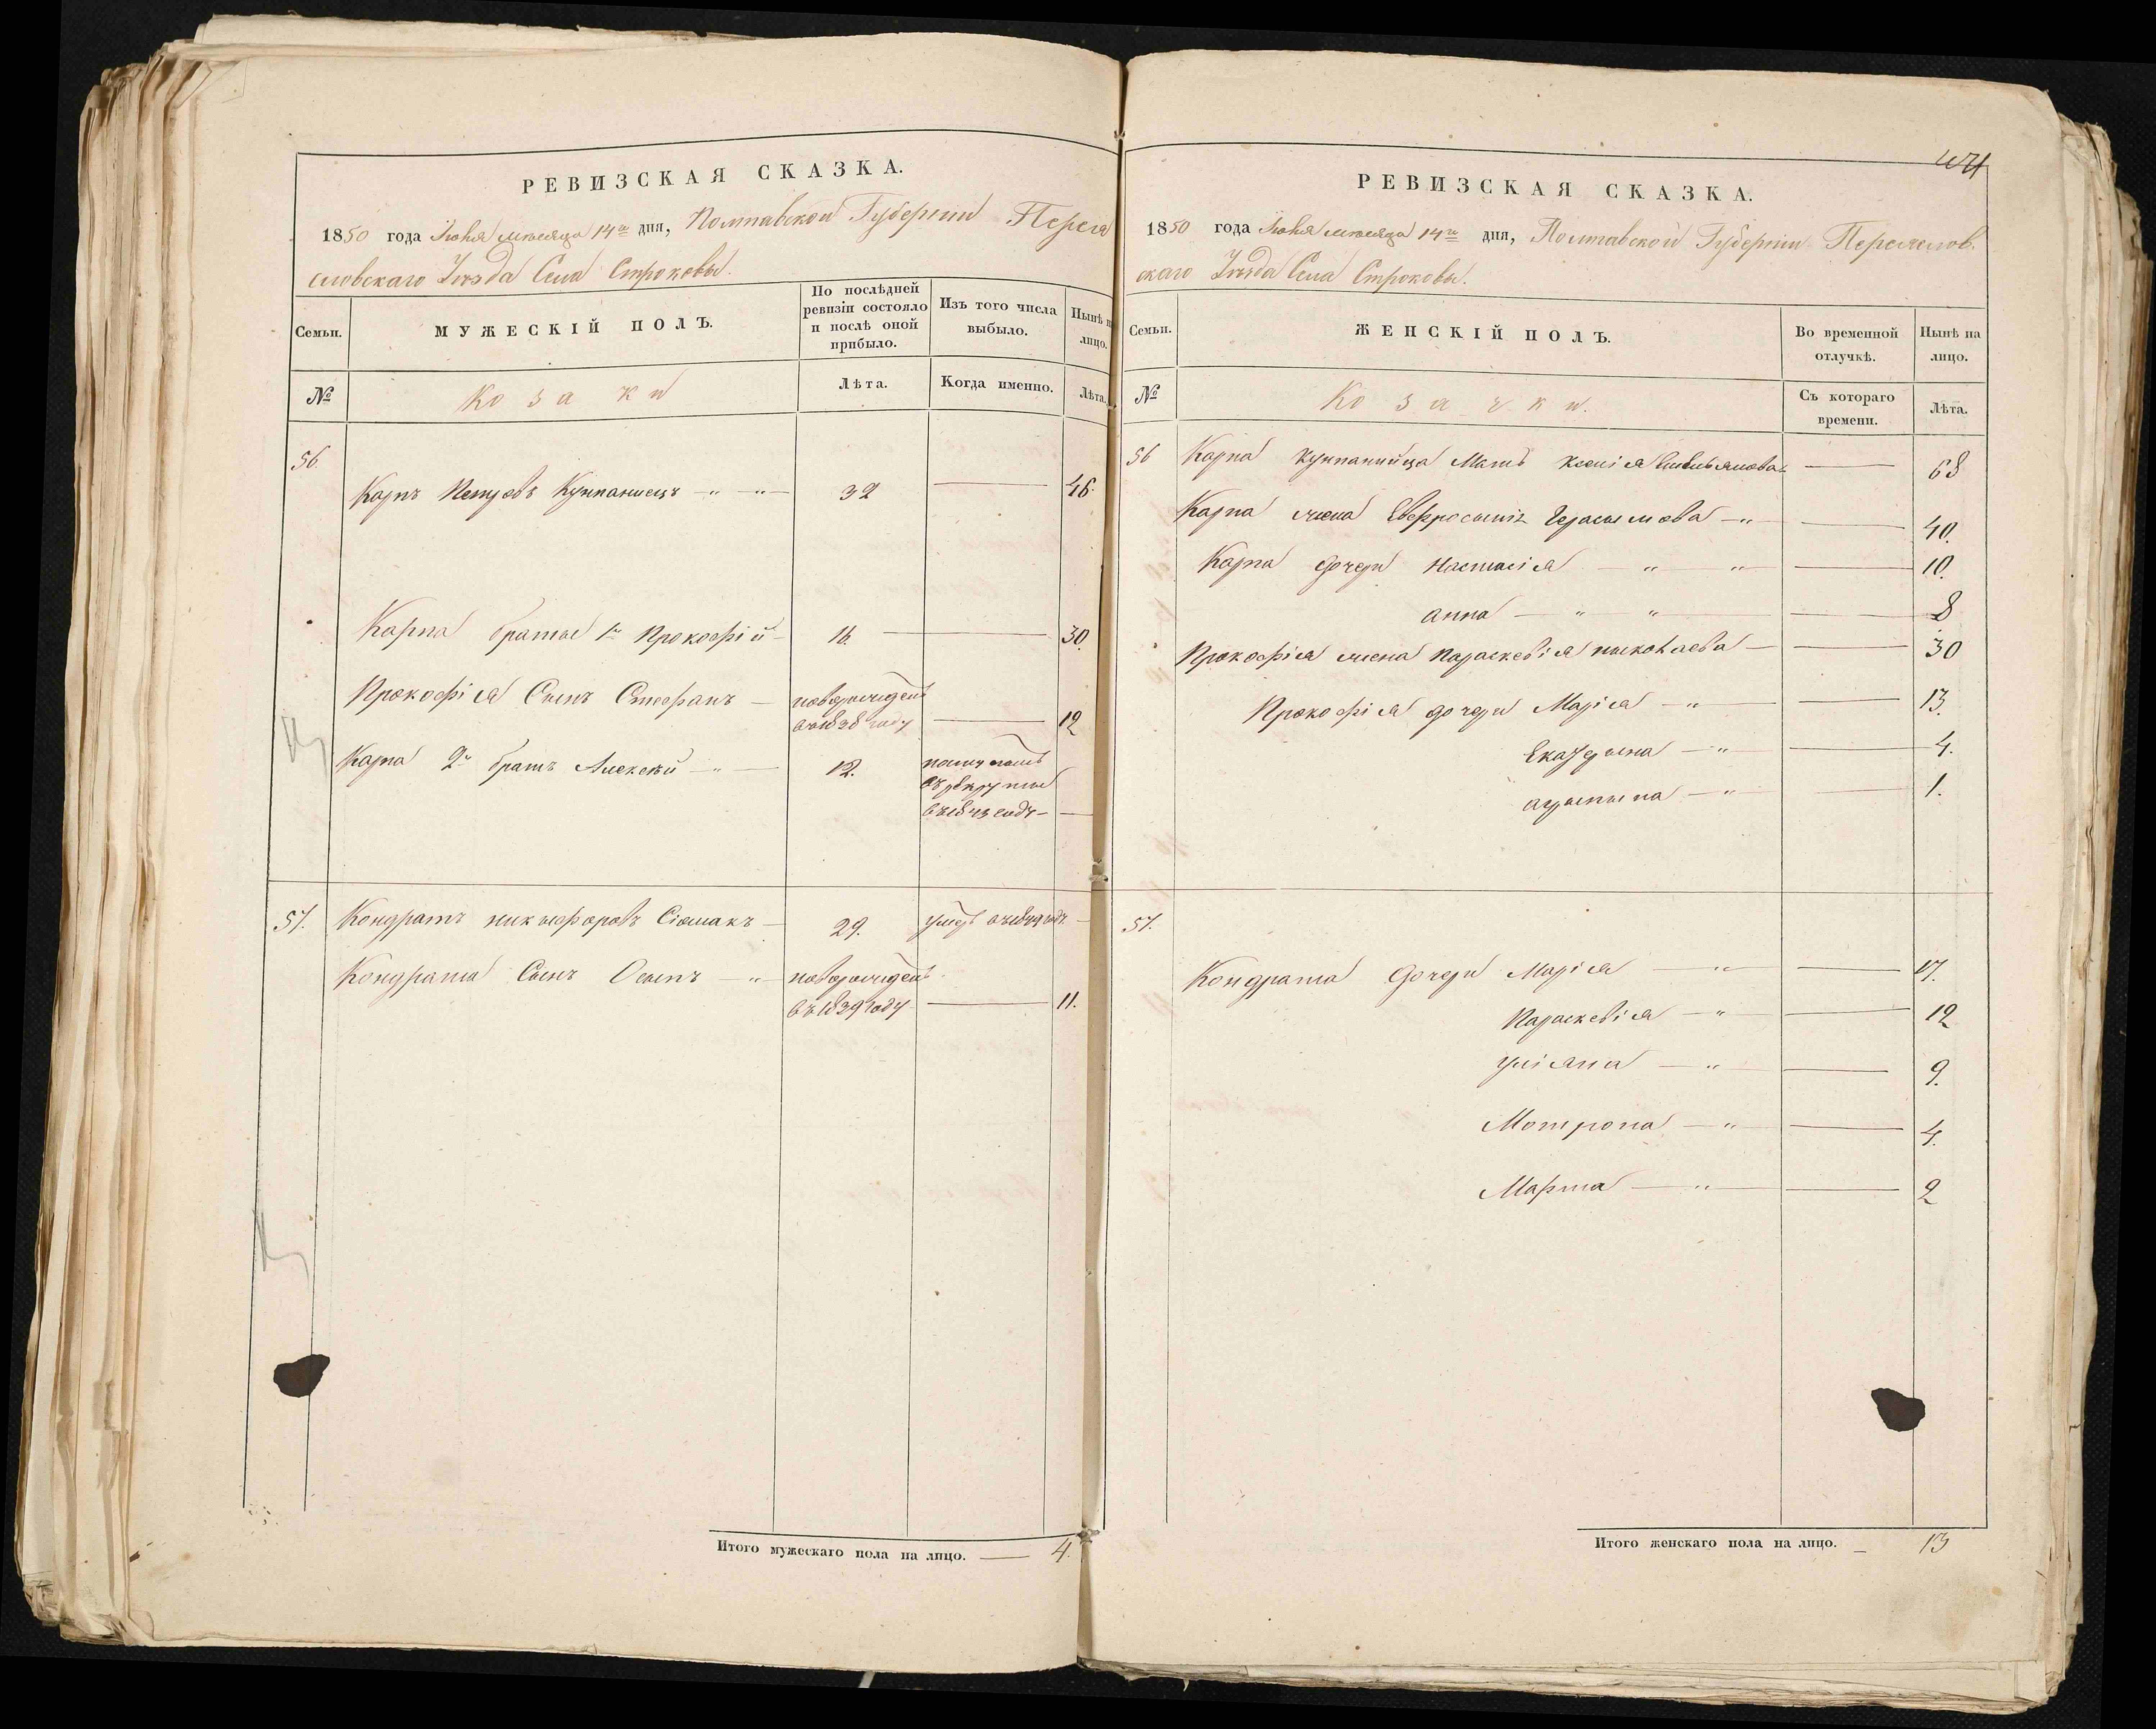 РЕВИЗСКАЯ СКАЗКА.
1850 года Июня месяца 14го дня, Полтавской Губернии Перея
словскаго Уезда Села Строковы.
Семьи.
МУЖЕСКІЙ ПОЛЪ.
По послѣдней ревизіи состояло и послѣ оной прибыло.
Изъ того числа выбыло.
Нынѣ на лицо.
№
Козаки
Лѣта.
Когда именно.
Лѣта.
56.
Карпъ Петровъ Куппаниецъ — " — " — 32 — 46.
Карпа братья 1й Прокофій — 16. — 30.
Прокофія Сынъ Стефанъ — новорожденъ
въ 1838 году — 12
Карпа 2й братъ Алексѣй — " — 12.
въ рекруты
въ 1843 году —
57. Кондратъ никыфоровъ Сіомакъ — 29. умеръ въ 1849 годѣ —
Кондрата Сынъ Осыпъ — " — новорожденъ
въ 1839 году — 11.
Итого мужескаго пола на лицо. — 4.
РЕВИЗСКАЯ СКАЗКА.
1850 года Июня месяца 14го дня, Полтавской Губерніи Переяслов
скаго Уезда Села Строковы.
Семьи.
ЖЕНСКІЙ ПОЛЪ.
Во временной отлучкѣ.
Нынѣ на лицо.
№
Козачки.
Съ котораго времени.
Лѣта.
56 Карпа Куппанийца Мать Ксенія — 68
Карпа жена Евфросынія Герасымова — " — 40.
Карпа дочери Настасія — " — " — 10.
анна — " — " — 8
Прокофія жена Параскевія ныколаева — 30
Прокофія дочери Марія — " — 13.
Екатерына — " — 4.
— " — 1.
57.
Кондрата дочери Марія — " — 17.
Параскевія — " — 12
Уліяна — " — 9.
Мотрона — " — 4.
Марта — " — 2
Итого женскаго пола на лицо. — 13